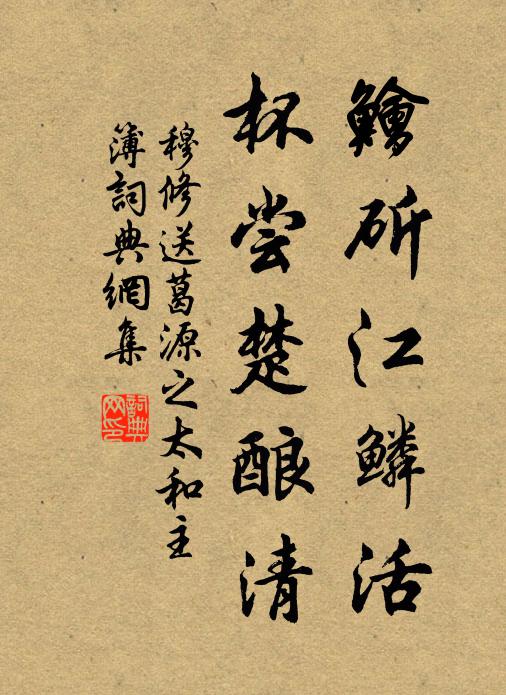 鱠斫江鱗活
杯尝楚酿清
穆修送葛源之太和主
簿詞典網集
詞典网印